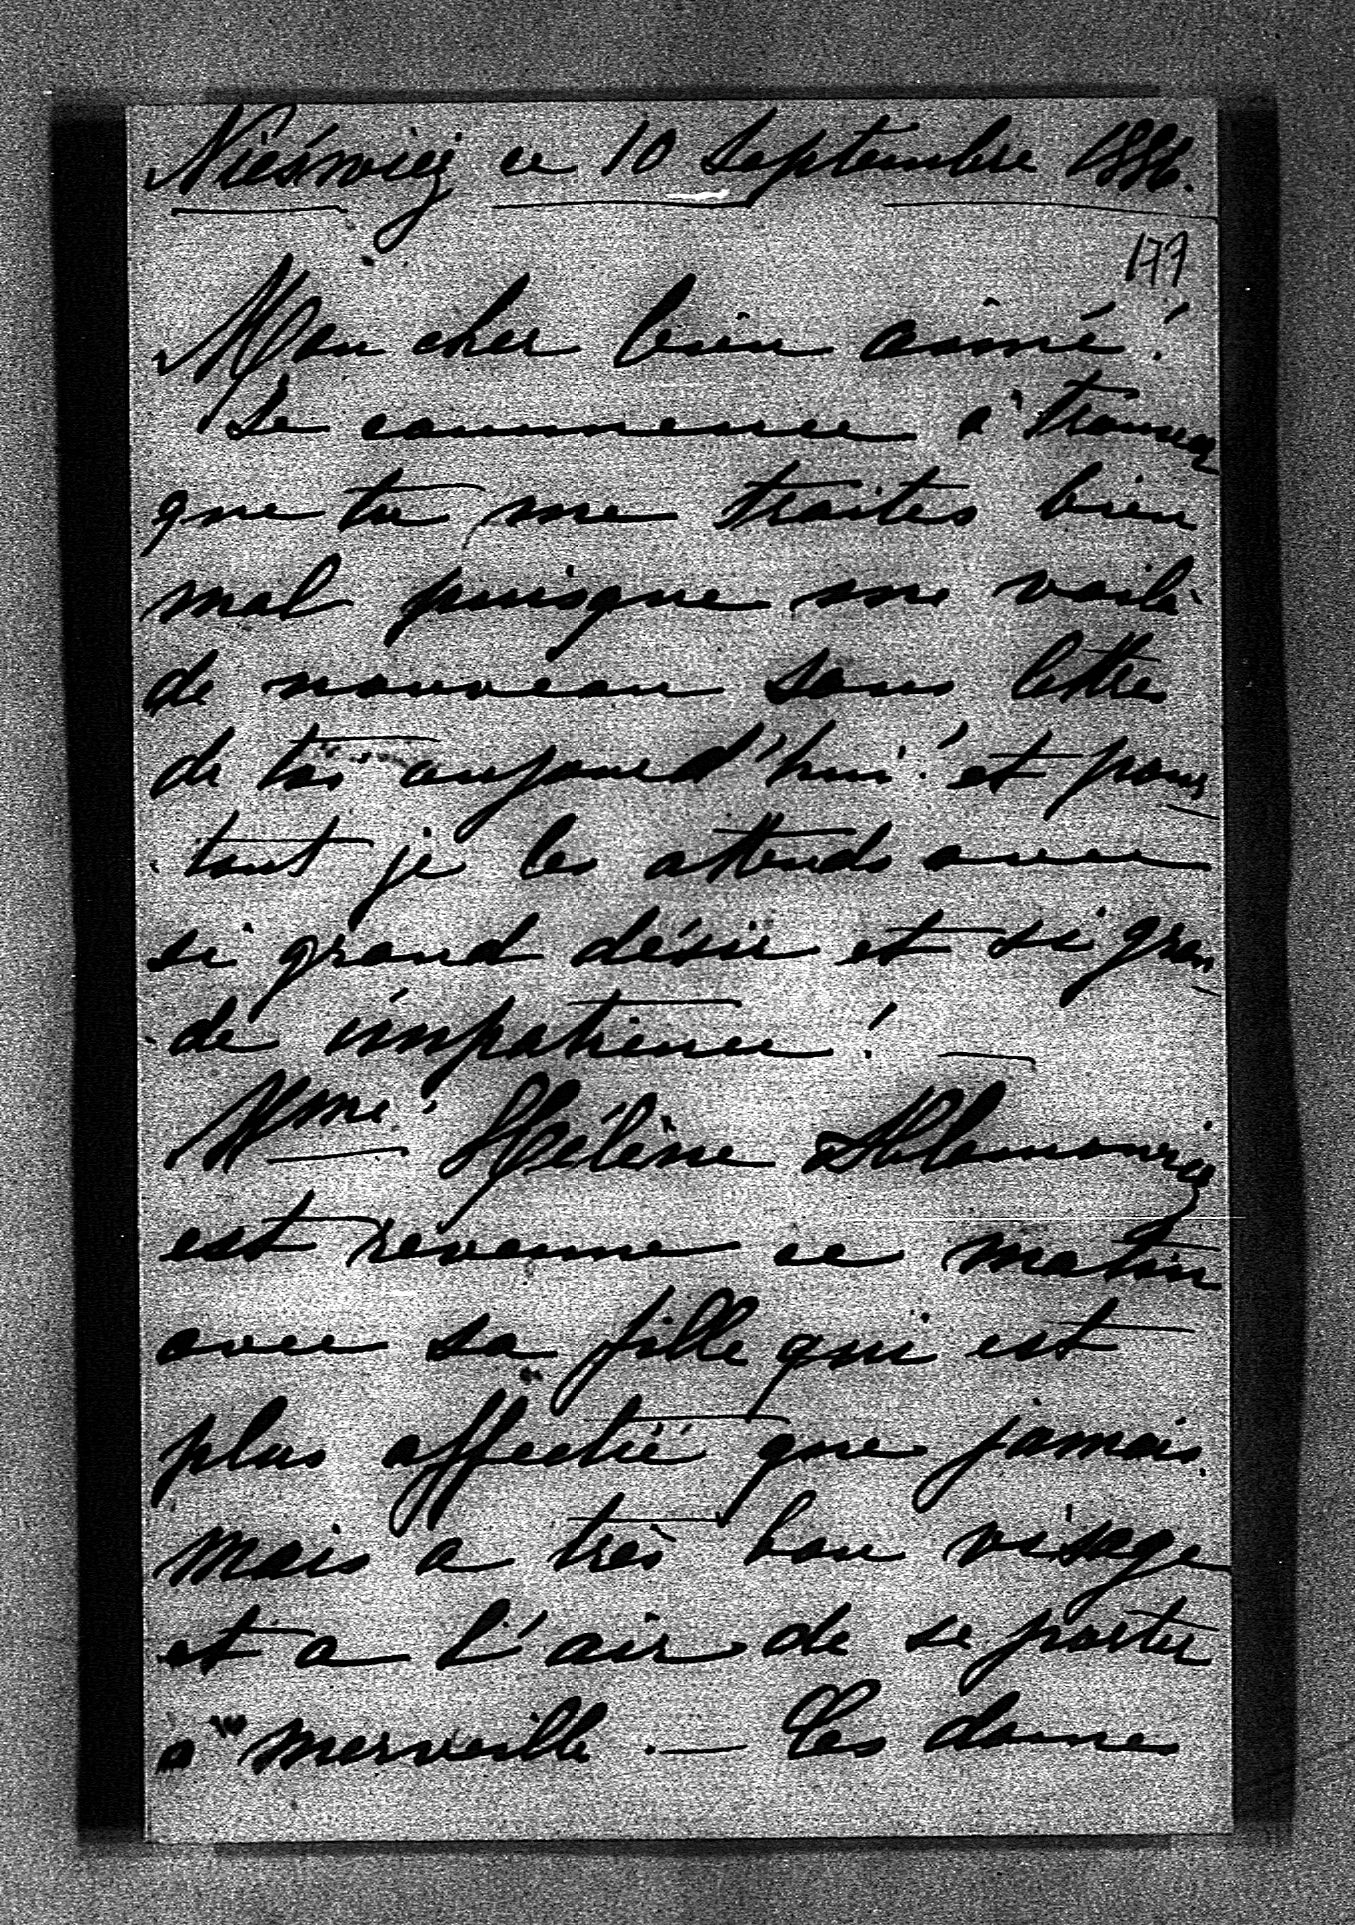 Nieśwież ce 10 Septembre 1886.
177
Mon cher bien aimé!
Je commence à trouver
que tu me traites bien
mal puisque me voilà
de nouveau sans lettres
de toi aujourd'hui! et pour
tant je les attends avec
si grand désir et si gran
de impatience! —
Mme Hélène Ablamowicz
est revenue ce matin
avec sa fille qui est
plus affectée que jamais
mais a très bon visage
et a l'air de se porter
à merveille. — Les dames